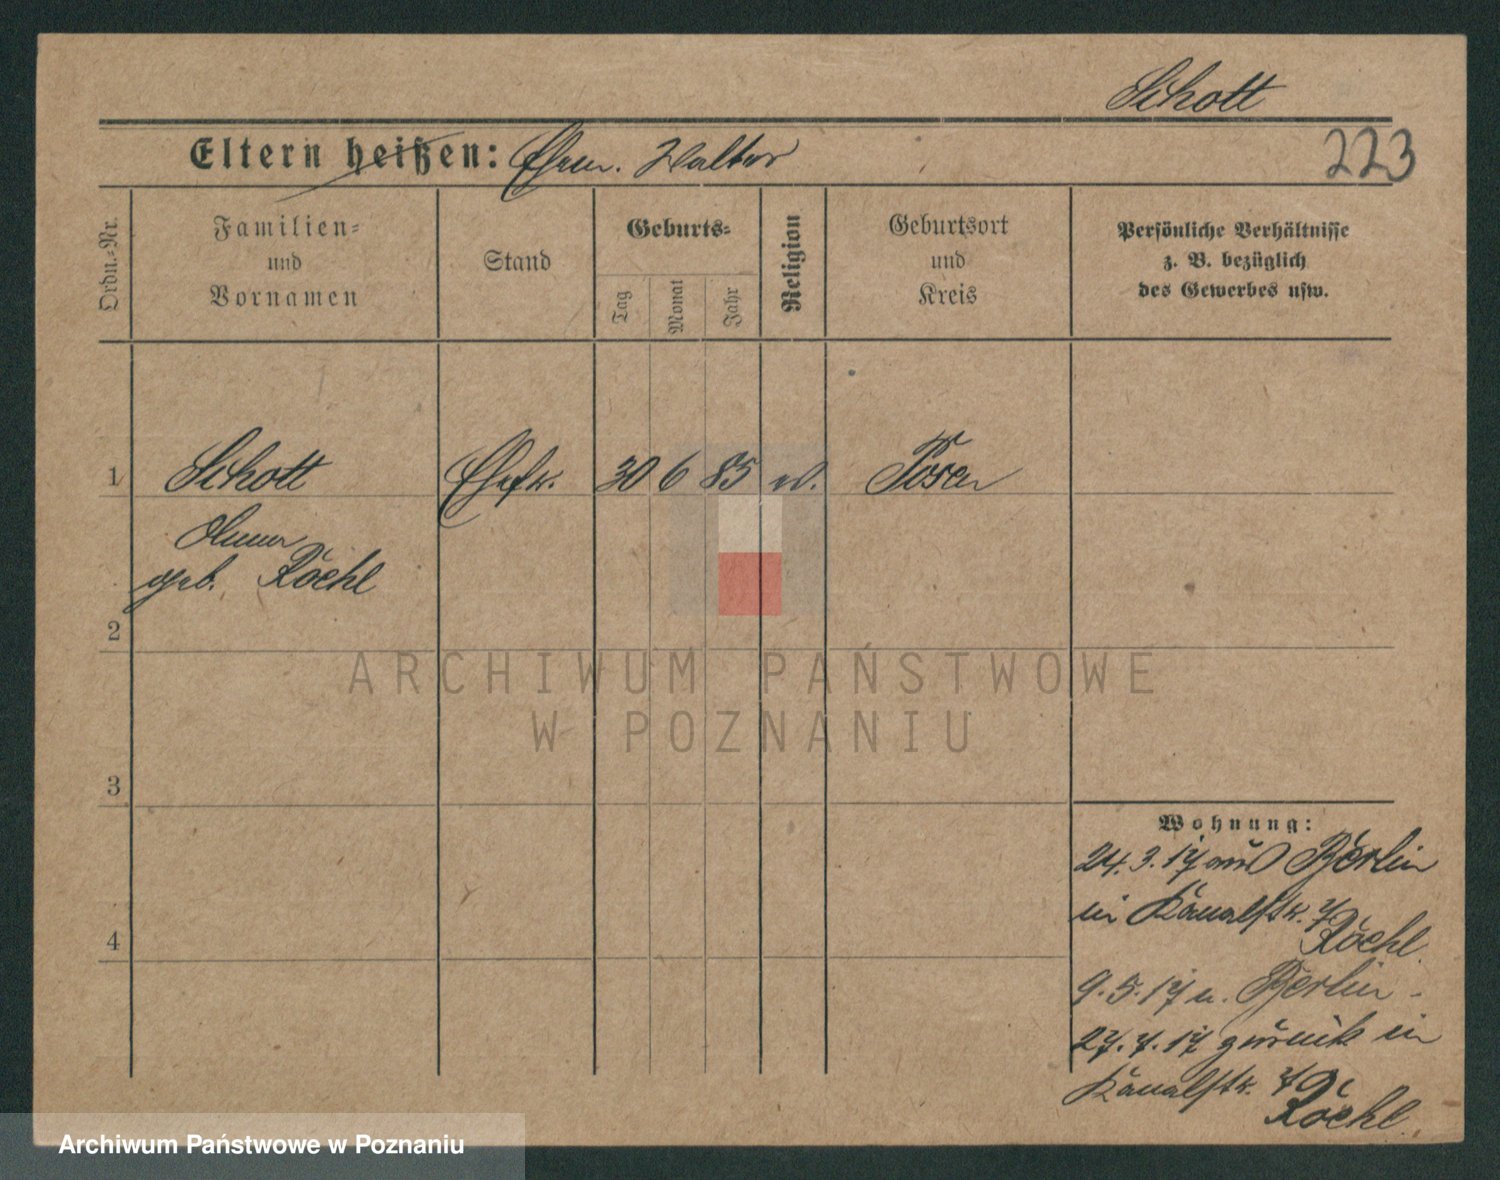 Schott
Eltern heißen: Ehem. Walter
223
Ordn.-Nr.
Familien-
und
Vornamen
Stand
Geburts-
Tag
Monat
Jahr
Religion
Geburtsort
und
Kreis
Persönliche Verhältnisse
z. B. bezüglich
des Gewerbes usw.
1 Schott Ehefr. 30 6 85 ev. Posen
geb. Röchl
2
3
4
ARCHIWUM PAŃSTWOWE
W POZNANIU
Wohnung:
24. 3. 17 aus Berlin
in Kanalstr. 7
Röchl.
9. 5. 17 n. Berlin -
27. 7. 17 zurück in
Kanalstr. 7
Röchl.
Archiwum Państwowe w Poznaniu